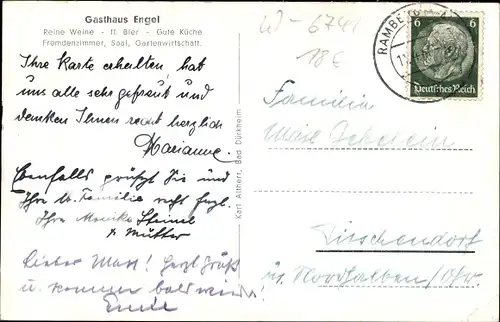 Gasthaus Engel
Reine Weine - ff. Bier - Gute Küche
Fremdenzimmer, Saal, Gartenwirtschaft.
Ihre Karte erhalten, hat
uns alle sehr gefreut und
danken Ihnen recht herzlich
Marianne.
Ebenfalls grüßt Sie und
Ihre w. Familie recht
Ihre Monika
u. Mutter
Lieber Max! Herzl. Grüße
u. kommen bald wieder!
Karl Altherr, Bad Dürkheim
W-6741
18€
RAMBE
6 6
Deutsches Reich
Familie
Tischendorf